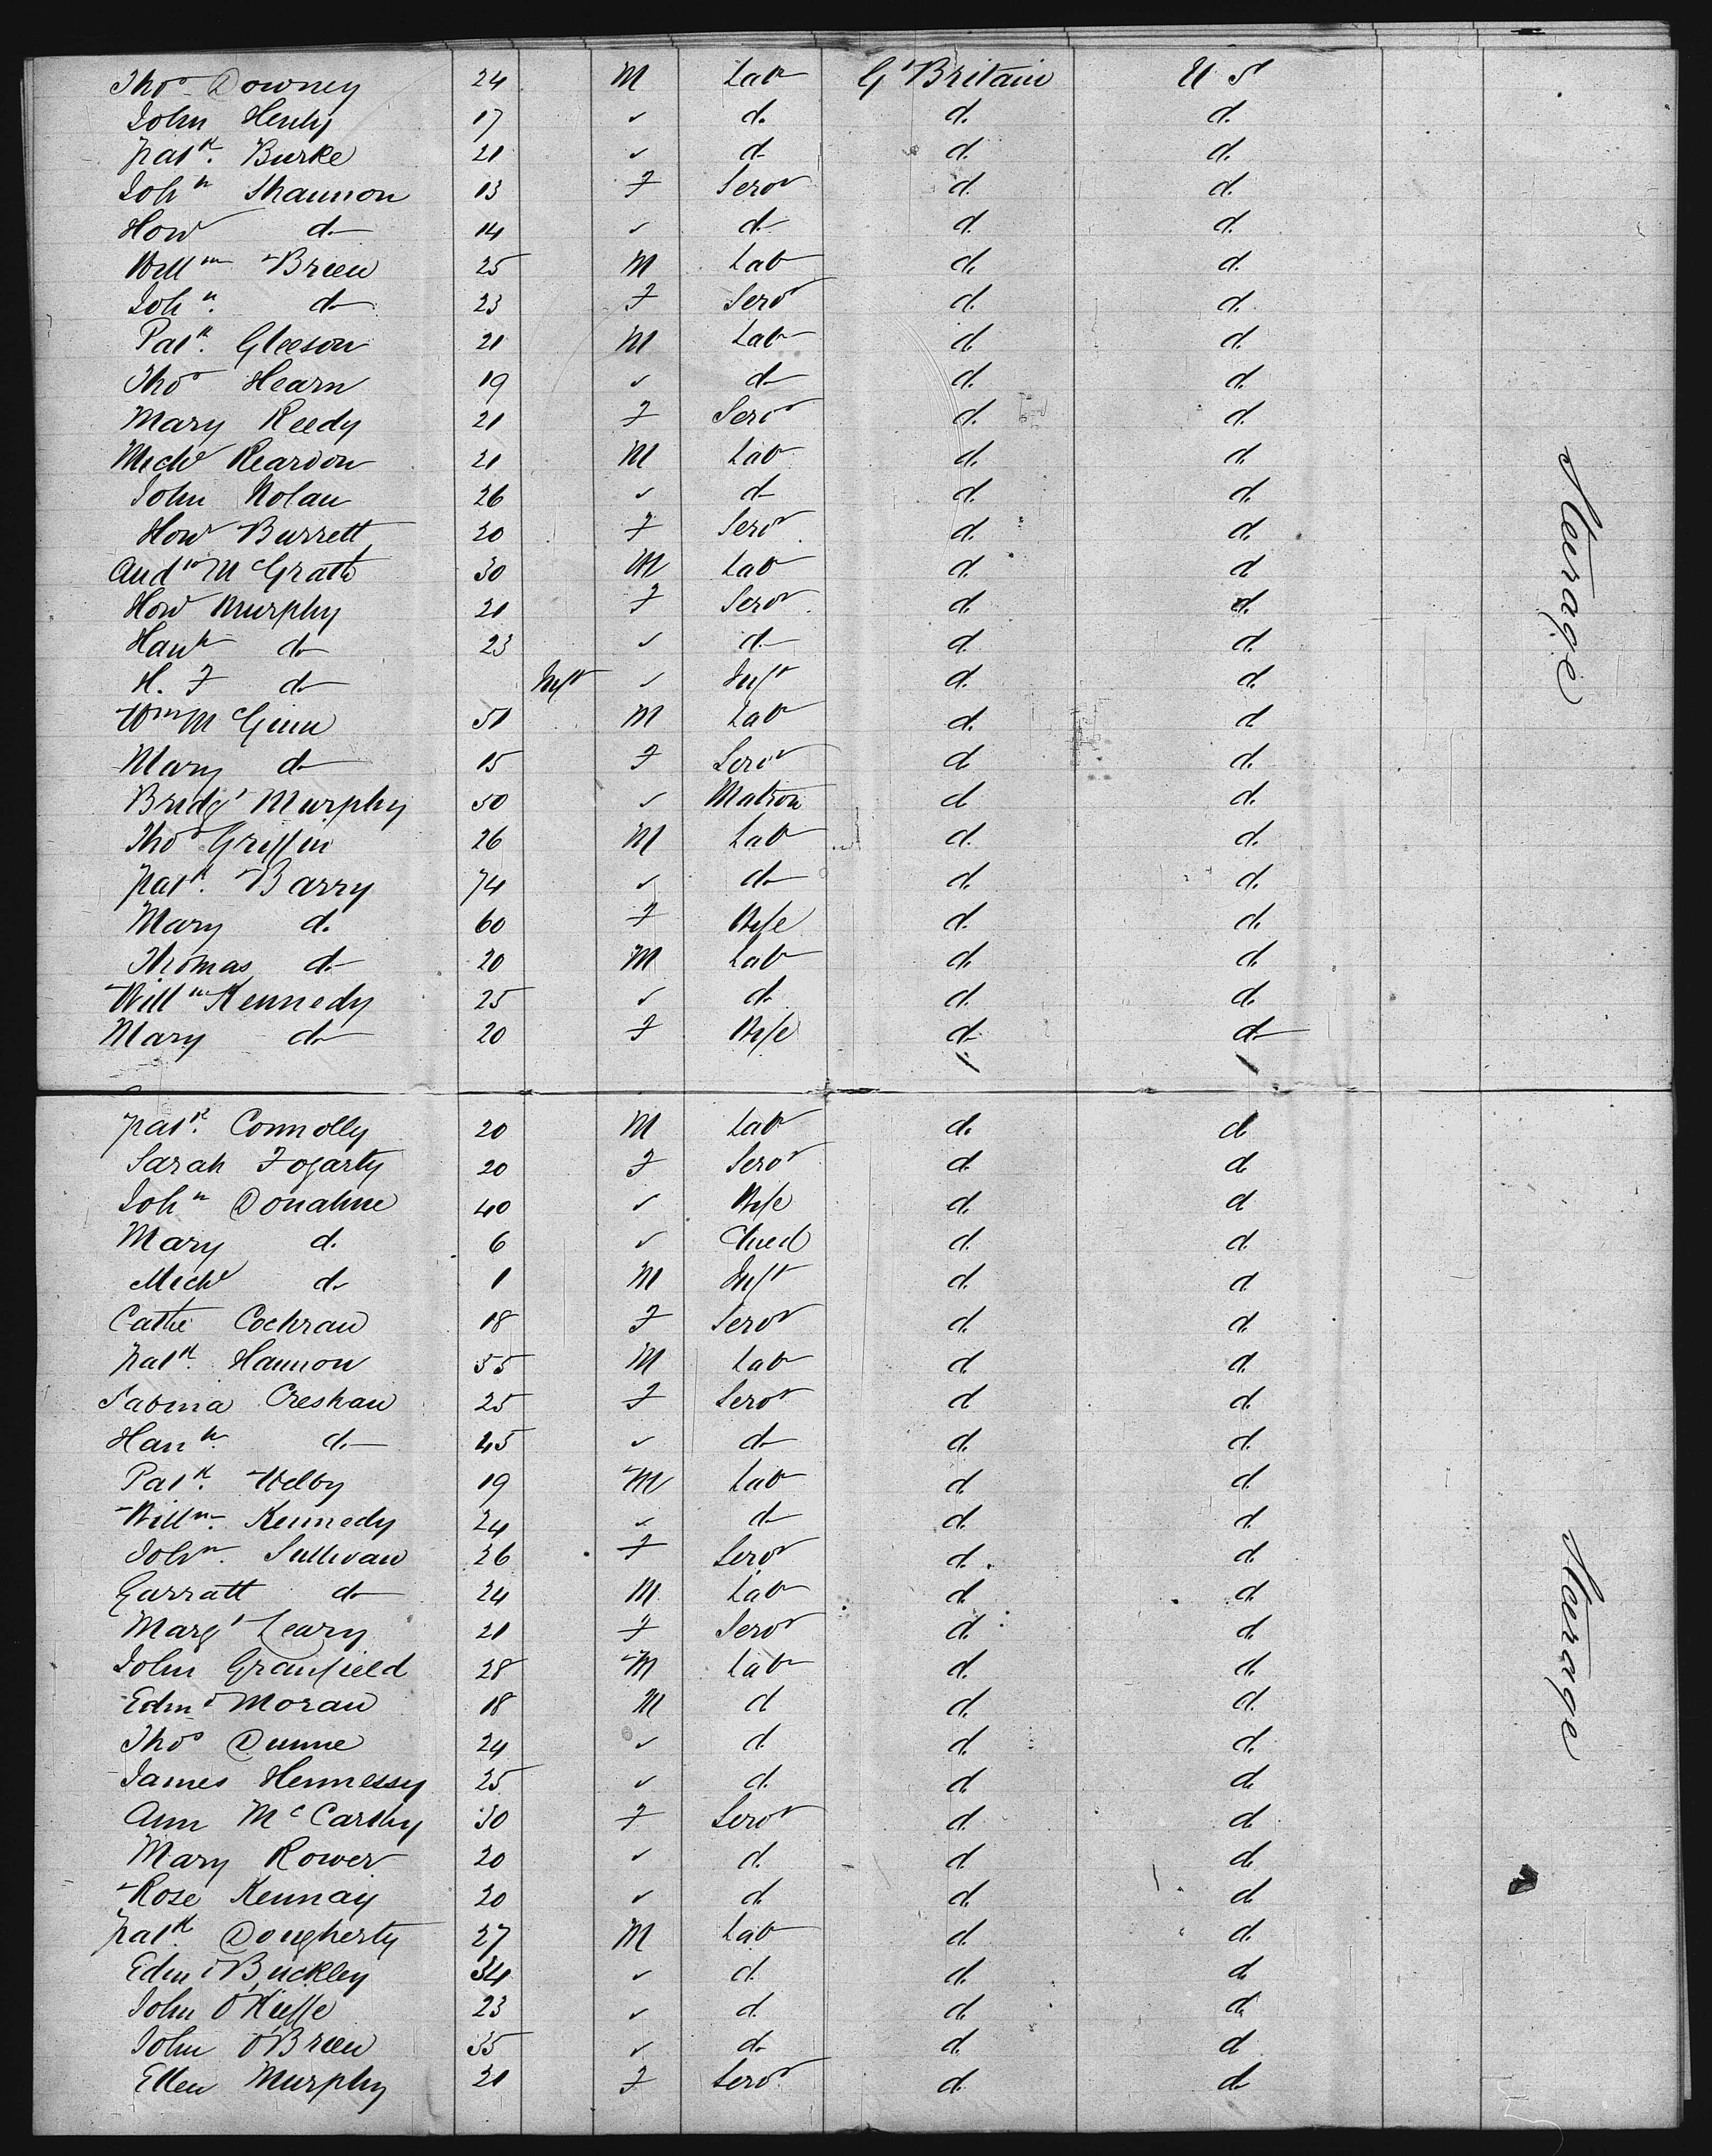 Thos Downey 24 M Labr Gt Britain U S
John Henly 17 " d. d. d.
Patk. Burke 21 " d. d. d.
Johna Shannon 13 F Servt d. d.
Hona d. 14 " d. d. d.
Willm Breen 25 M Labr d. d.
Joha. d. 23 F Servt d. d.
Patk. Gleeson 21 M Labr d. d.
Thos Hearn 19 " d. d. d.
Mary Reedy 21 F Servt d. d.
Michl Reardon 21 M Labr d. d.
John Nolan 26 " d. d. d.
Hona Burrett 20 F Servt d. d.
Andw McGrath 30 M Labr d. d
Hona Murphy 21 F Servt d. d.
Hanh d. 23 " d. d. d.
H. F d. Inft " Inft d. d.
Wm McGinn 51 M Labr d. d
Mary d. 15 F Servt d. d.
Bridgt Murphy 50 " Matron d. d.
Thos Griffin 26 M Labr d. d.
Patk. Barry 74 " d. d. d.
Mary d. 60 F Wife d. d.
Thomas d. 20 M Labr d. d.
Willm Kennedy 25 " d. d. d.
Mary d. 20 F Wife d. d.
Steerage
Patk. Connolly 20 M Labr d. d.
Sarah Fogarty 20 F Servt d. d.
Joha Donahue 40 " Wife d. d
Mary d. 6 " Child d. d.
Michl d. 1 M Inft d. d
Cathe Cochran 18 F Servt d. d.
Patk. Hannon 55 M Labr d. d.
Sabina Creshan 25 F Servt d d.
Hanh. d. 45 " d. d. d.
Patk. Welby 19 M Labr d. d.
Willm. Kennedy 24 " d. d. d.
Joha. Sullivan 26 F Servt d. d.
Garratt d. 24 M Labr d. d.
Margt Leary 21 F Servt d. d.
John Granfield 28 M Labr d. d.
Edmd Moran 18 M d d. d.
Thos Dunne 24 " d. d. d.
James Hennessy 25 " d. d. d.
Ann McCarthy 30 F Servt d. d.
Mary Rower 20 " d. d. d.
Rose Kennay 20 " d. d. d.
Patk. Dougherty 27 M Labr d. d.
Edmd Buckley 34 " d. d. d.
John O'Kieffe 23 " d. d. d.
John O'Breen 35 " d. d. d
Ellen Murphy 21 F Servt d. d.
Steerage